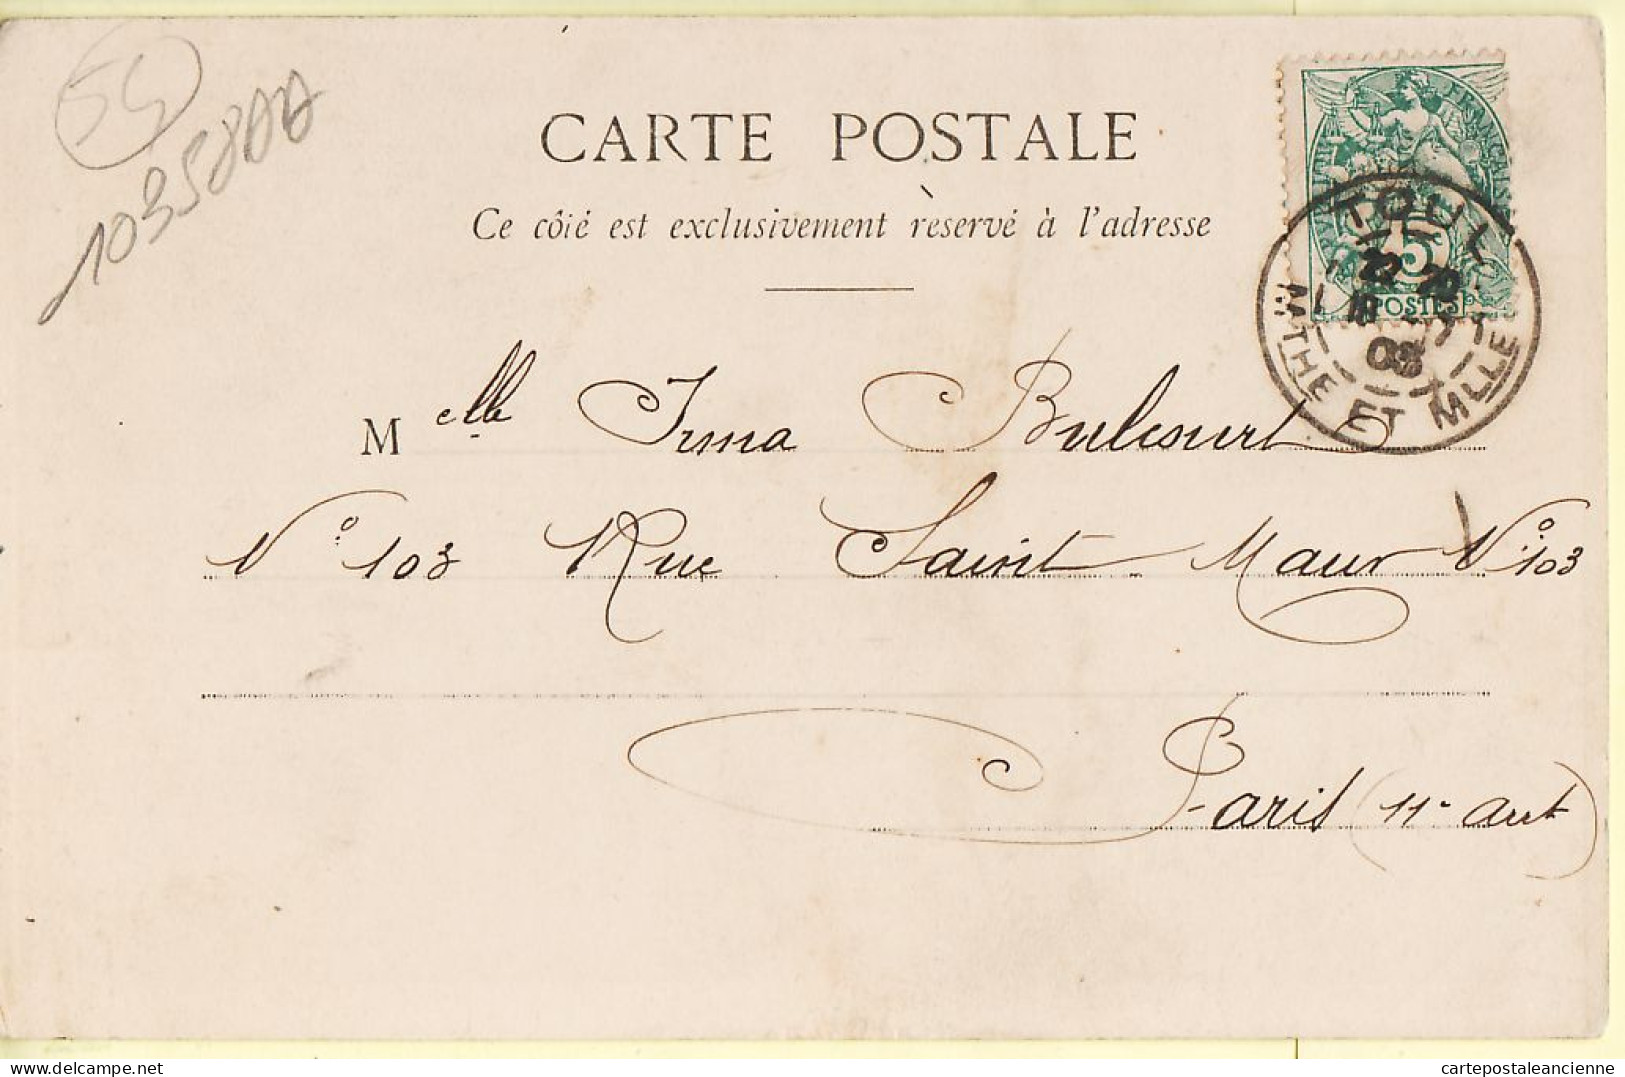 54
10358AA
CARTE POSTALE
Ce côté est exclusivement réservé à l'adresse
RÉPUBLIQUE FRANÇAISE
5
POSTES
TOUL
22 20
MTHE ET MLLE
03
Melle Irma Bulcourt
N° 103 Rue Saint Maur N° 103
Paris (11e arrt)
cartepostaleancienne